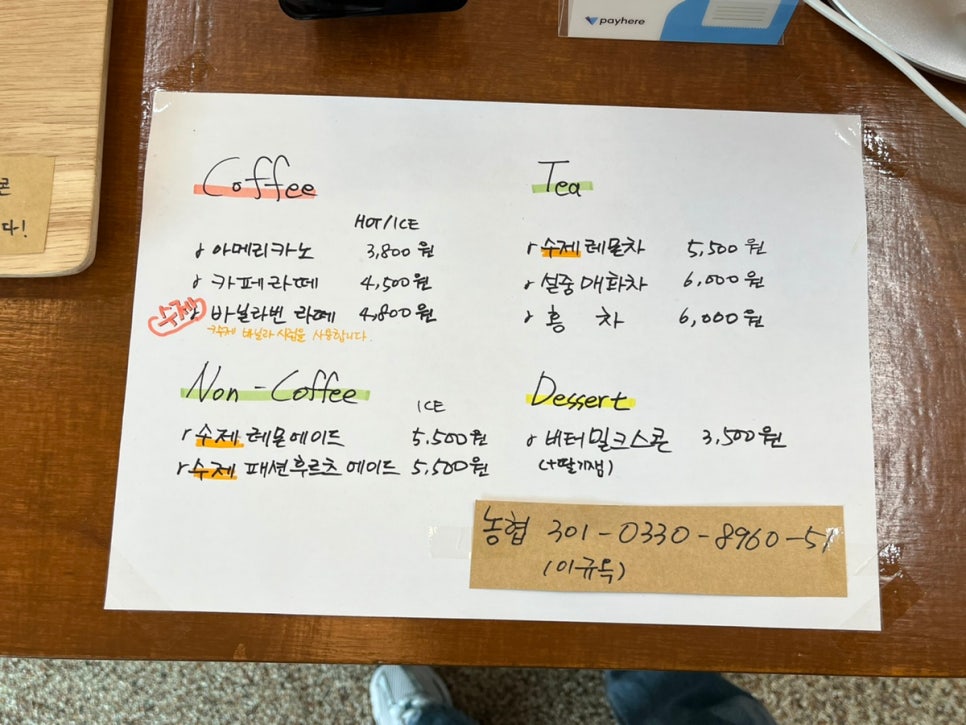 payhere
콘
다!
Coffee
HOT/ICE
아메리카노 3,800원
카페라떼 4,500원
수제 바닐라빈 라떼 4,800원
*수제 바닐라 시럽을 사용합니다.
Non-Coffee
ICE
수제 레몬에이드 5,500원
수제 패션후르츠 에이드 5,500원
Tea
수제 레몬차 5,500원
설중매화차 6,000원
홍 차 6,000원
Dessert
버터밀크스콘 3,500원
(+딸기잼)
농협 301-0330-8960-51
(이규득)